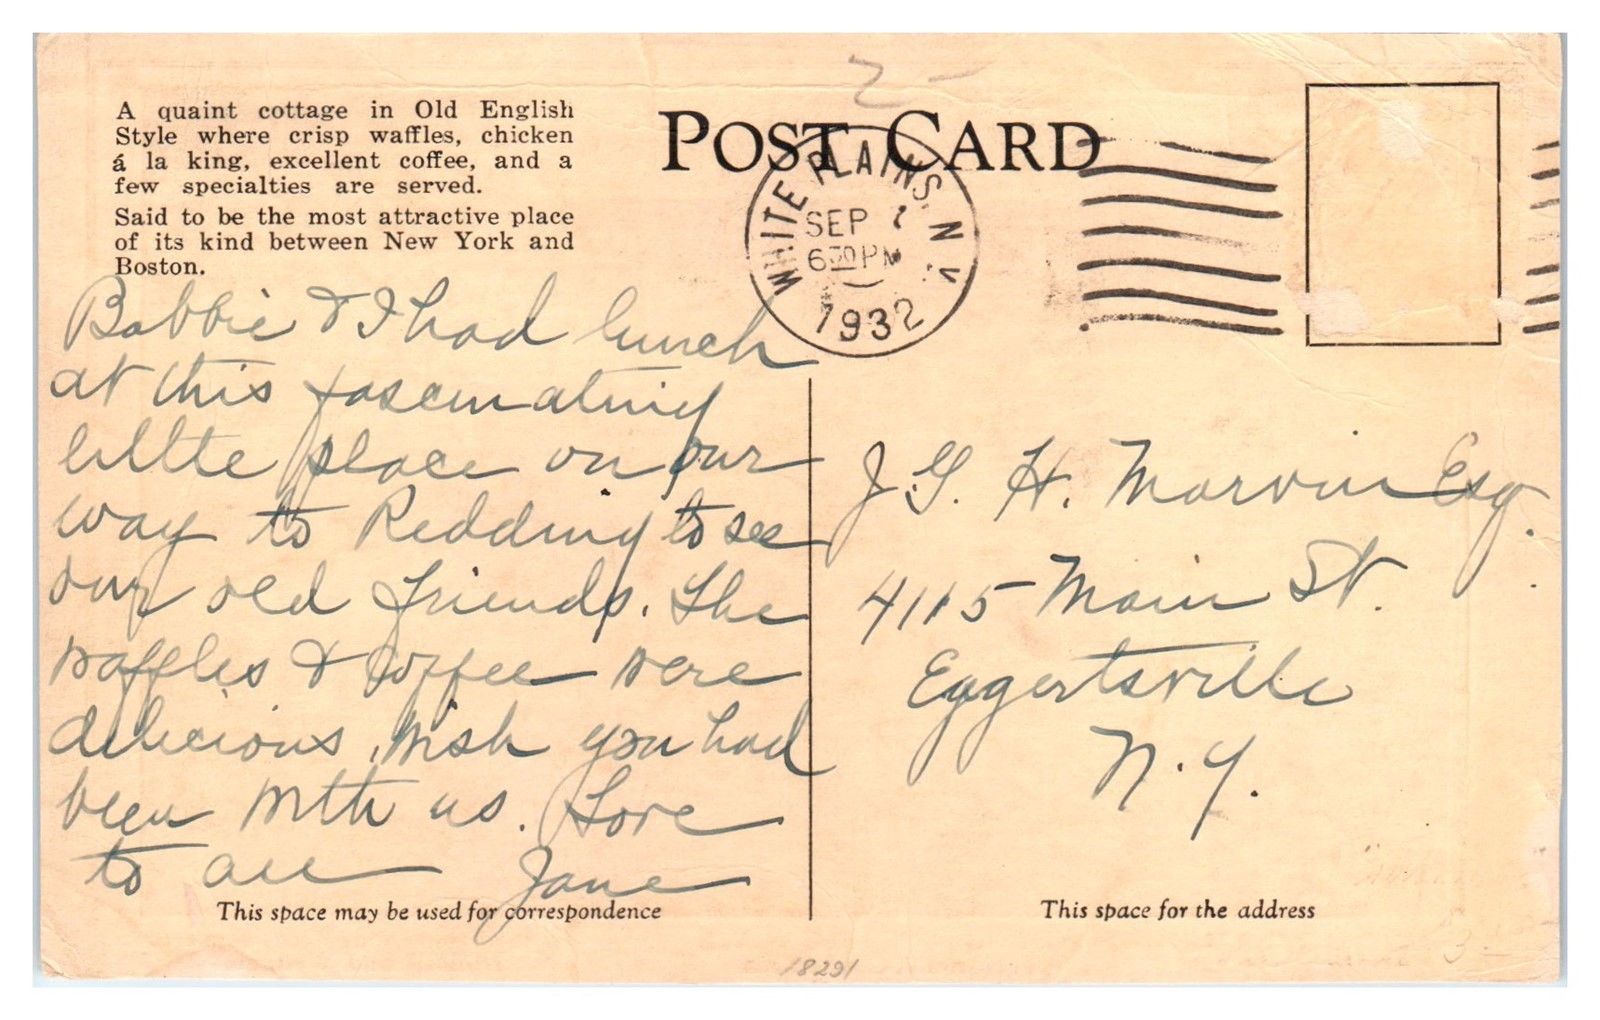 A quaint cottage in Old English
Style where crisp waffles, chicken
á la king, excellent coffee, and a
few specialties are served.
Said to be the most attractive place
of its kind between New York and
Boston.
POST CARD
WHITE PLAINS, N.Y.
SEP 7
6 30 PM
1932
Bobbie & I had lunch
at this fascinating
little place on our
way to Redding to see
our old friends. The
waffles & coffee were
delicious, wish you had
been with us. Love
to all Jane
This space may be used for correspondence
J. G. H. Marvin Esq.
4115 Main St.
Eggertsville
N.Y.
This space for the address
18291